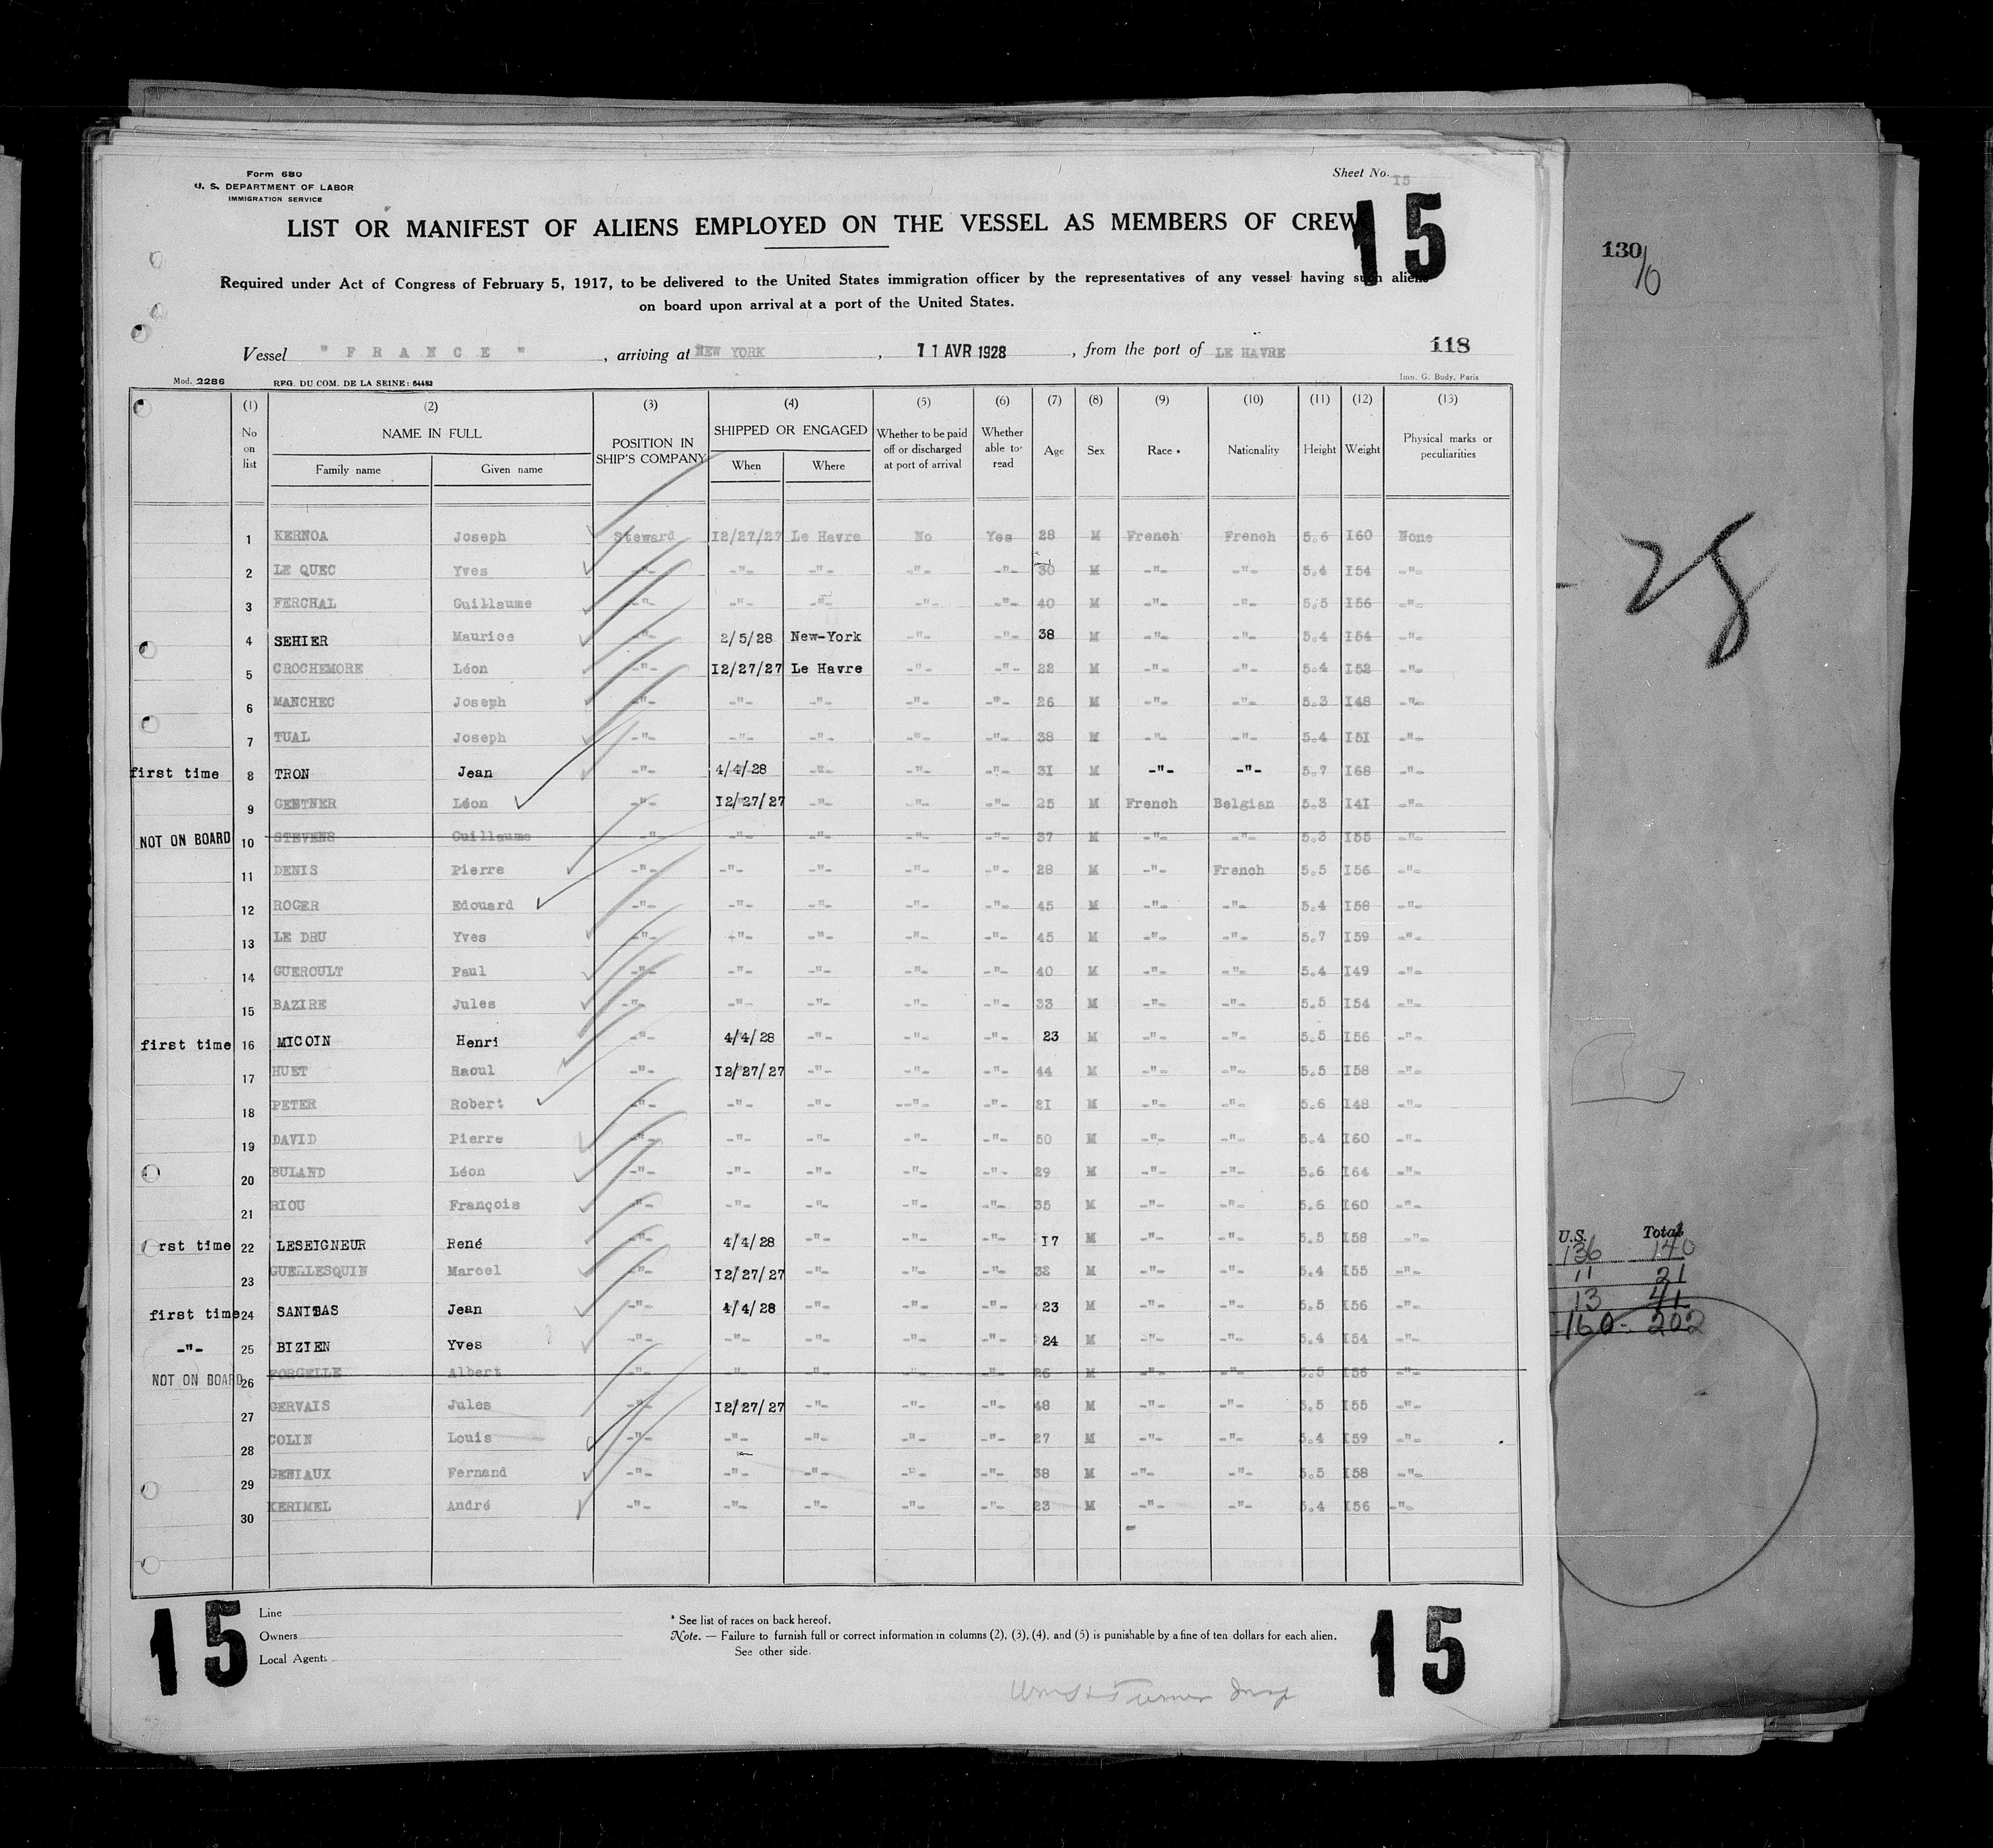 Form 680
U. S. DEPARTMENT OF LABOR
IMMIGRATION SERVICE
Sheet No. I5
15
LIST OR MANIFEST OF ALIENS EMPLOYED ON THE VESSEL AS MEMBERS OF CREW
Required under Act of Congress of February 5, 1917, to be delivered to the United States immigration officer by the representatives of any vessel having such aliens
on board upon arrival at a port of the United States.
Vessel " F R A N C E " , arriving at NEW YORK , 11 AVR 1928 , from the port of LE HAVRE 118
Mod. 2286 REG. DU COM. DE LA SEINE: 64483 Imp. G. Body, Paris
(1) (2) (3) (4) (5) (6) (7) (8) (9) (10) (11) (12) (13)
No on list NAME IN FULL Family name Given name POSITION IN SHIP'S COMPANY SHIPPED OR ENGAGED When Where Whether to be paid off or discharged at port of arrival Whether able to read Age Sex Race * Nationality Height Weight Physical marks or peculiarities
1 KERNOA Joseph Steward I2/27/27 Le Havre No Yes 28 M French French 5.6 I60 None
2 LE QUEC Yves -"- -"- -"- -"- -"- 30 M -"- -"- 5.4 I54 -"-
3 FERCHAL Guillaume -"- -"- -"- -"- -"- 40 M -"- -"- 5.5 I56 -"-
4 SEHIER Maurice -"- 2/5/28 New-York -"- -"- 38 M -"- -"- 5.4 I54 -"-
5 CROCHEMORE Léon -"- I2/27/27 Le Havre -"- -"- 22 M -"- -"- 5.4 I52 -"-
6 MANCHEC Joseph -"- -"- -"- -"- -"- 26 M -"- -"- 5.3 I48 -"-
7 TUAL Joseph -"- -"- -"- -"- -"- 38 M -"- -"- 5.4 I5I -"-
first time 8 TRON Jean -"- 4/4/28 -"- -"- -"- 3I M -"- -"- 5.7 I68 -"-
9 GENTNER Léon -"- I2/27/27 -"- -"- -"- 25 M French Belgian 5.3 I4I -"-
NOT ON BOARD 10 STEVENS Guillaume -"- -"- -"- -"- -"- 37 M -"- -"- 5.3 I55 -"-
11 DENIS Pierre -"- -"- -"- -"- -"- 28 M -"- French 5.5 I56 -"-
12 ROGER Edouard -"- -"- -"- -"- -"- 45 M -"- -"- 5.4 I58 -"-
13 LE DRU Yves -"- -"- -"- -"- -"- 45 M -"- -"- 5.7 I59 -"-
14 GUEROULT Paul -"- -"- -"- -"- -"- 40 M -"- -"- 5.4 I49 -"-
15 BAZIRE Jules -"- -"- -"- -"- -"- 33 M -"- -"- 5.5 I54 -"-
first time 16 MICOIN Henri -"- 4/4/28 -"- -"- -"- 23 M -"- -"- 5.5 I56 -"-
17 HUET Raoul -"- I2/27/27 -"- -"- -"- 44 M -"- -"- 5.5 I58 -"-
18 PETER Robert -"- -"- -"- -"- -"- 2I M -"- -"- 5.6 I48 -"-
19 DAVID Pierre -"- -"- -"- -"- -"- 50 M -"- -"- 5.4 I60 -"-
20 BULAND Léon -"- -"- -"- -"- -"- 29 M -"- -"- 5.6 I64 -"-
21 RIOU François -"- -"- -"- -"- -"- 35 M -"- -"- 5.6 I60 -"-
rst time 22 LESEIGNEUR René -"- 4/4/28 -"- -"- -"- I7 M -"- -"- 5.5 I58 -"-
23 GUELLESQUIN Marcel -"- I2/27/27 -"- -"- -"- 32 M -"- -"- 5.4 I55 -"-
first time 24 SANIDAS Jean -"- 4/4/28 -"- -"- -"- 23 M -"- -"- 5.5 I56 -"-
-"- 25 BIZIEN Yves -"- -"- -"- -"- -"- 24 M -"- -"- 5.4 I54 -"-
NOT ON BOARD 26 FORGELLE Albert -"- -"- -"- -"- -"- 26 M -"- -"- 5.5 I56 -"-
27 GERVAIS Jules -"- I2/27/27 -"- -"- -"- 48 M -"- -"- 5.5 I55 -"-
28 COLIN Louis -"- -"- -"- -"- -"- 27 M -"- -"- 5.4 I59 -"-
29 GENIAUX Fernand -"- -"- -"- -"- -"- 38 M -"- -"- 5.5 I58 -"-
30 KERIMEL André -"- -"- -"- -"- -"- 23 M -"- -"- 5.4 I56 -"-
15
Line
Owners
Local Agents
* See list of races on back hereof.
Note. — Failure to furnish full or correct information in columns (2), (3), (4), and (5) is punishable by a fine of ten dollars for each alien.
See other side.
Turner Insp
15
130
10
28
U.S. Total
136 140
11 21
13 41
160 - 202